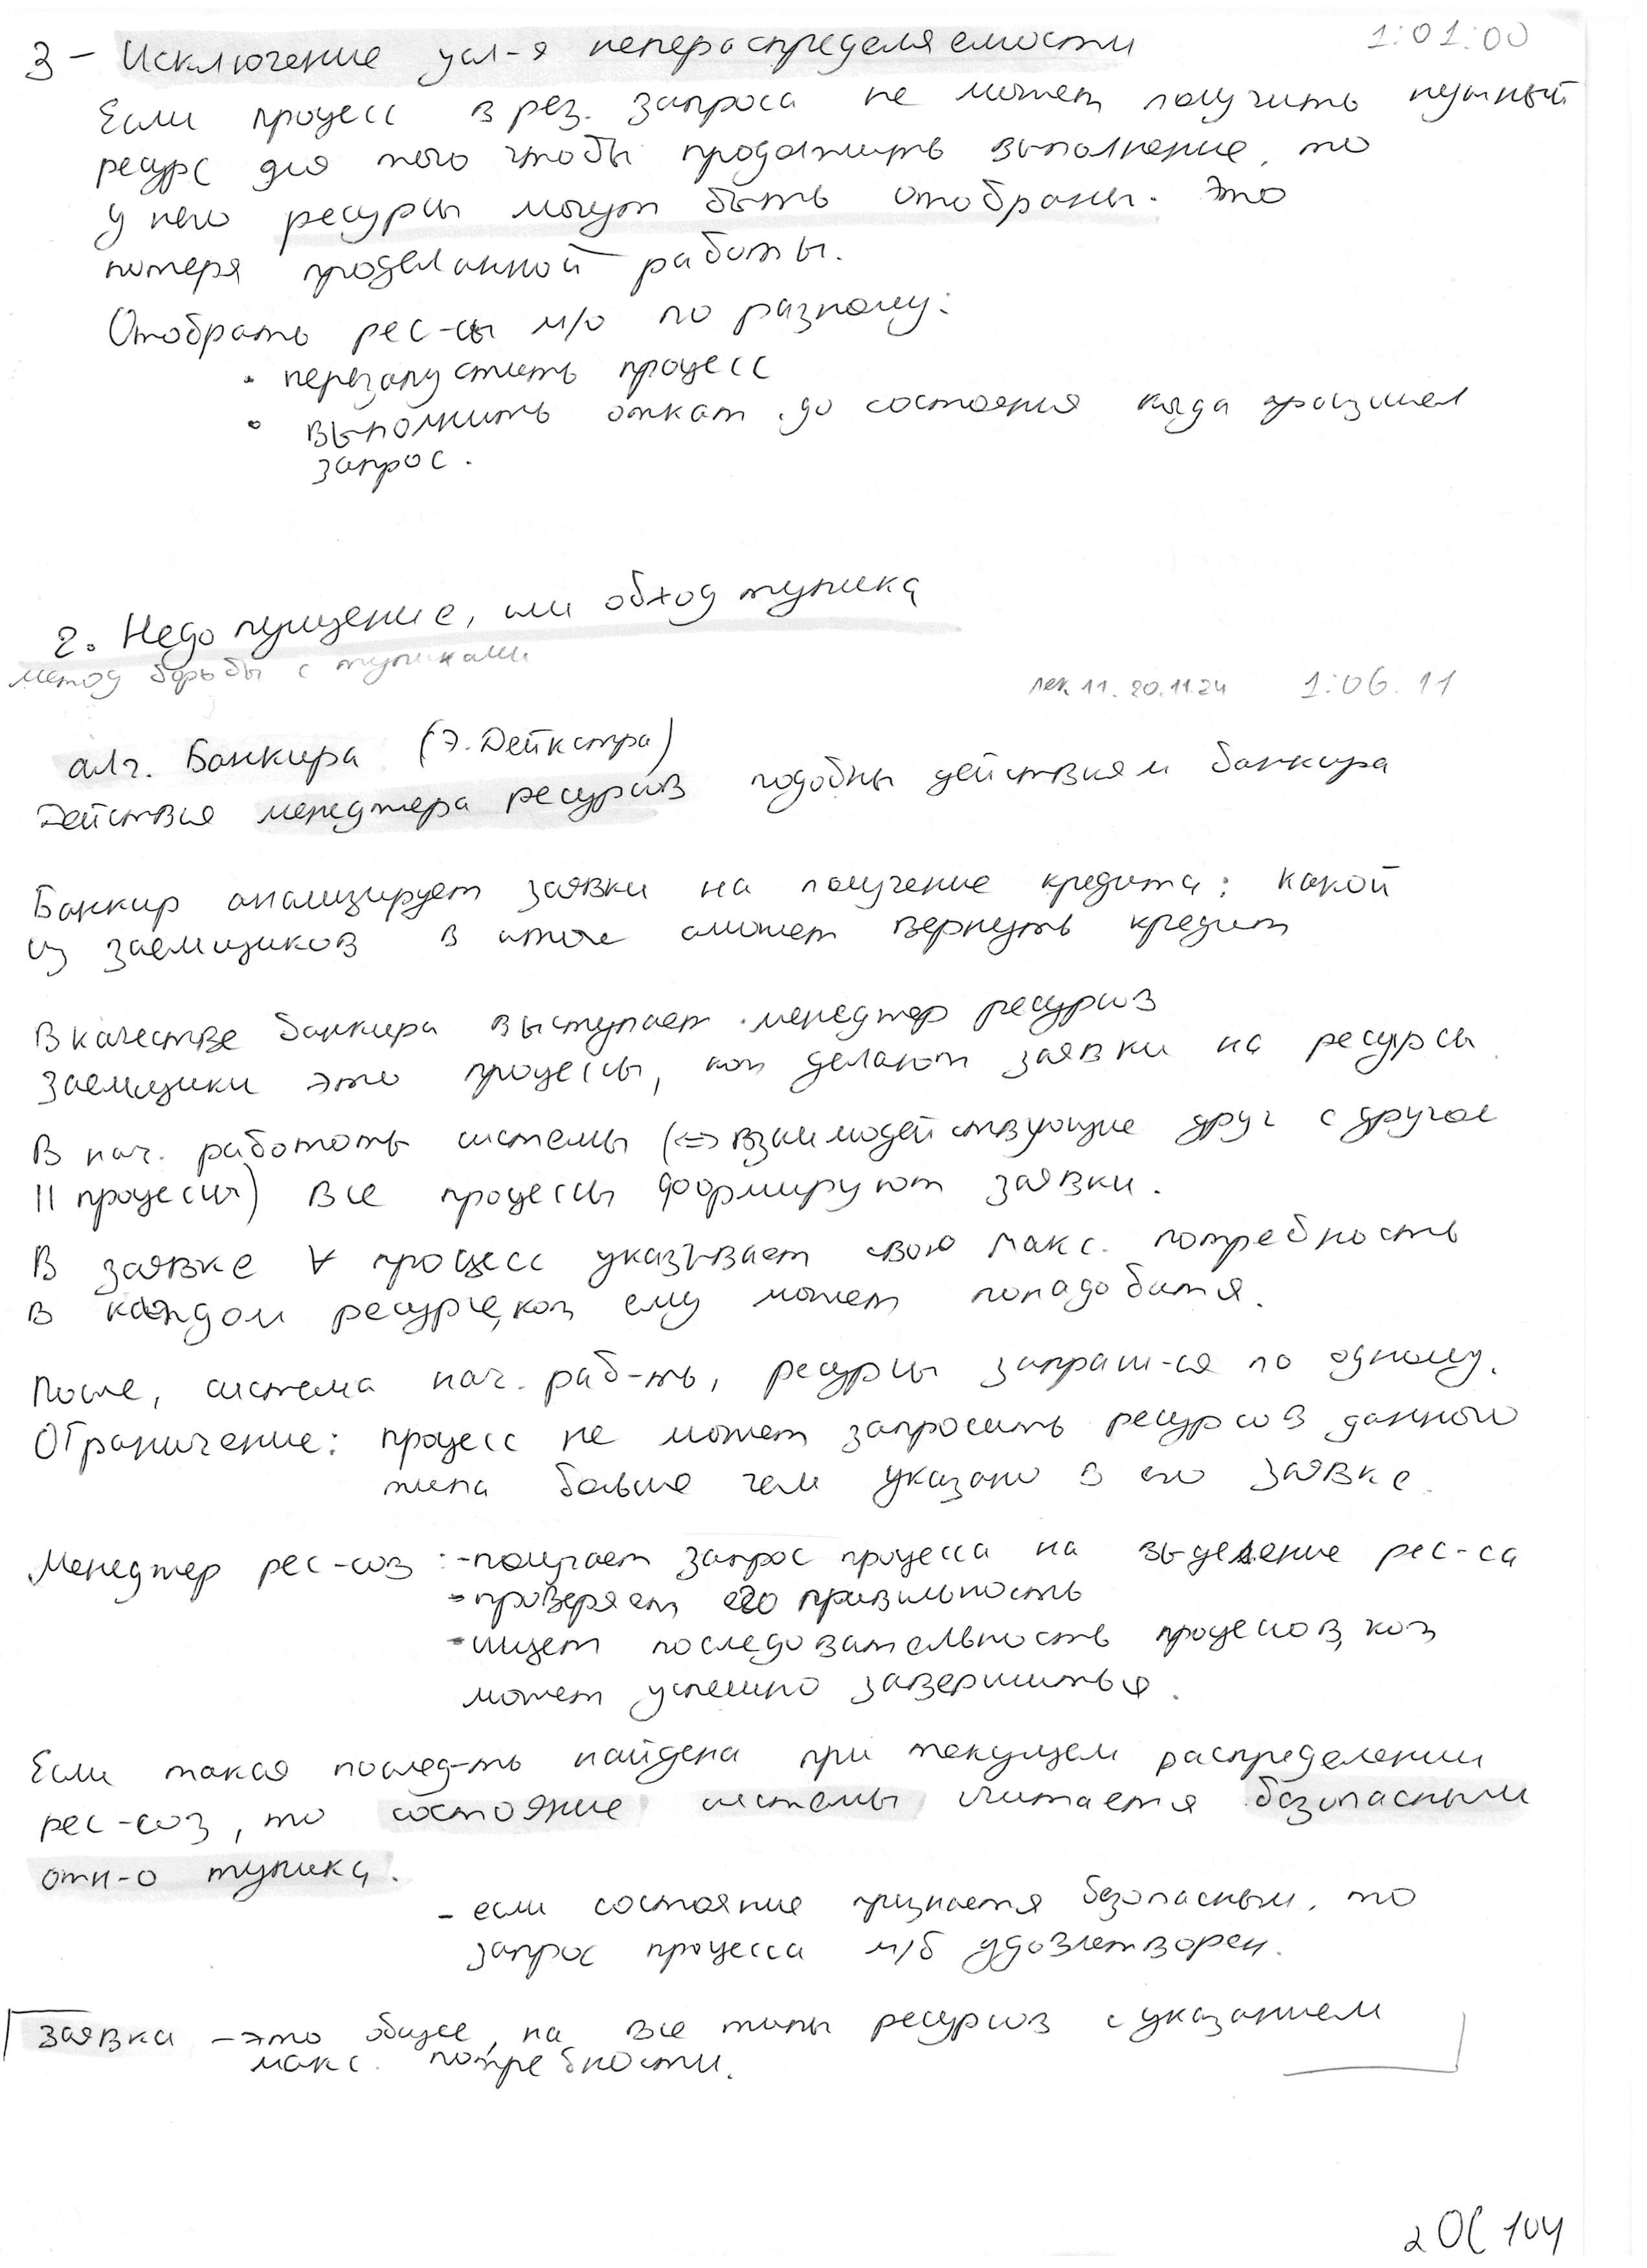 1:01:00
3 - Исключение усл-я неперераспределяемости
Если процесс в рез. запроса не может получить нужный
ресурс для того чтобы продолжить выполнение, то
у него ресурсы могут быть отобраны. Это
потеря проделанной работы.
Отобрать рес-сы м/о по разному:
• перезапустить процесс
• выполнить откат до состояния когда произошел
запрос.
2. Недопущение, или обход тупика
метод борьбы с тупиками
лек 11. 20.11.24 1:06.11
алг. Банкира (Э. Дейкстра)
Действия менеджера ресурсов подобны действиям банкира
Банкир анализирует заявки на получение кредита: какой
из заемщиков в итоге сможет вернуть кредит
В качестве банкира выступает менеджер ресурсов
Заемщики это процессы, кот делают заявки на ресурсы.
В нач. работать системы (<=> взаимодействующие друг с другом
|| процессы) все процессы формируют заявки.
В заявке ∀ процесс указывает свою макс. потребность
в каждом ресурсе, кот ему может понадобится.
После, система нач. раб-ть, ресурсы запраш-ся по одному.
Ограничение: процесс не может запросить ресурсов данного
типа больше чем указано в его заявке.
Менеджер рес-сов: - получает запрос процесса на выделение рес-са
- проверяет его правильность
- ищет последовательность процессов, кот
может успешно завершиться.
Если такая послед-ть найдена при текущем распределении
рес-сов, то состояние системы считается безопасным
отн-о тупика.
- если состояние признается безопасным, то
запрос процесса м/б удовлетворен.
Заявка - это общее, на все типы ресурсов с указанием
макс. потребности.
2 ОС 104